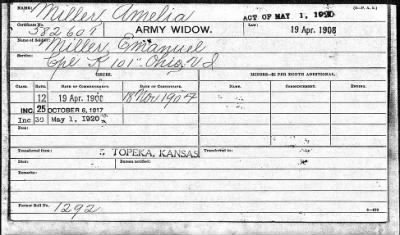 NAME: Miller Amelia ACT OF MAY 1, 1920
Certificate No. 582607 ARMY WIDOW. 19 Apr. 1908
Name of Soldier: Miller, Emanuel
Service: Cpl K 101" Ohio V I
ORDER. MINORS—$2 PER MONTH ADDITIONAL.
CLASS. RATE. DATE OF COMMENCEMENT.
12 19 Apr. 1908 18 Nov 1904
INC. 25 OCTOBER 6, 1917
Inc 30 May 1, 1920
Transferred from TOPEKA, KANSAS Transferred to:
Died: Bureau notified:
Remarks:
Former Roll No. 1292